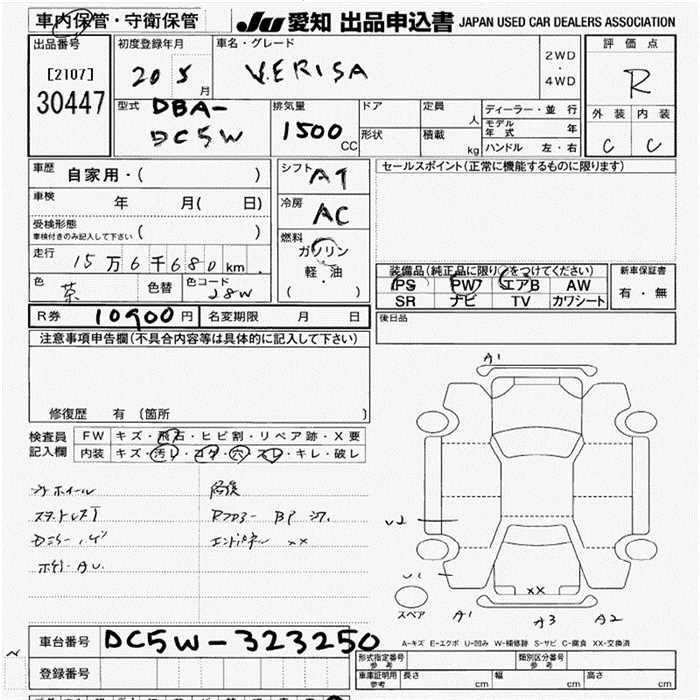 車内保管・守衛保管
JU 愛知 出品申込書 JAPAN USED CAR DEALERS ASSOCIATION
出品番号
[2107]
30447
初度登録年月
20 5 月
車名・グレード
VERISA
2WD
・
4WD
評価点
R
外装 内装
C C
型式
DBA-
DC5W
排気量
1500 CC
ドア
形状
定員 人
積載 kg
ディーラー・並行
モデル年式 年
ハンドル 左・右
車歴
自家用・( )
車検
年 月( 日)
受検形態
車検付きのみ記入して下さい ( )
走行
15万6千680km
色 茶
色替
色コード
28W
シフト AT
冷房 AC
燃料
ガソリン
軽・油
( )
セールスポイント(正常に機能するものに限ります)
装備品(純正品に限り○をつけてください)
PS PW エアB AW
SR ナビ TV カワシート
新車保証書
有・無
R券 10900円
名変期限 月 日
後日品
注意事項申告欄(不具合内容等は具体的に記入して下さい)
修復歴 有 (箇所 )
検査員
記入欄
FW キズ・飛石・ヒビ割・リペア跡・X要
内装 キズ・汚レ・コゲ・穴・スレ・キレ・破レ
A1
U2
U1
XX
スペア
A1 A3 A2
A-キズ E-エクボ U-凹み W-補修跡 S-サビ C-腐食 XX-交換済
車台番号
DC5W-323250
登録番号
形式指定番号
参考
類別区分番号
参考
車庫証明用
参考
長さ cm
幅 cm
高さ cm